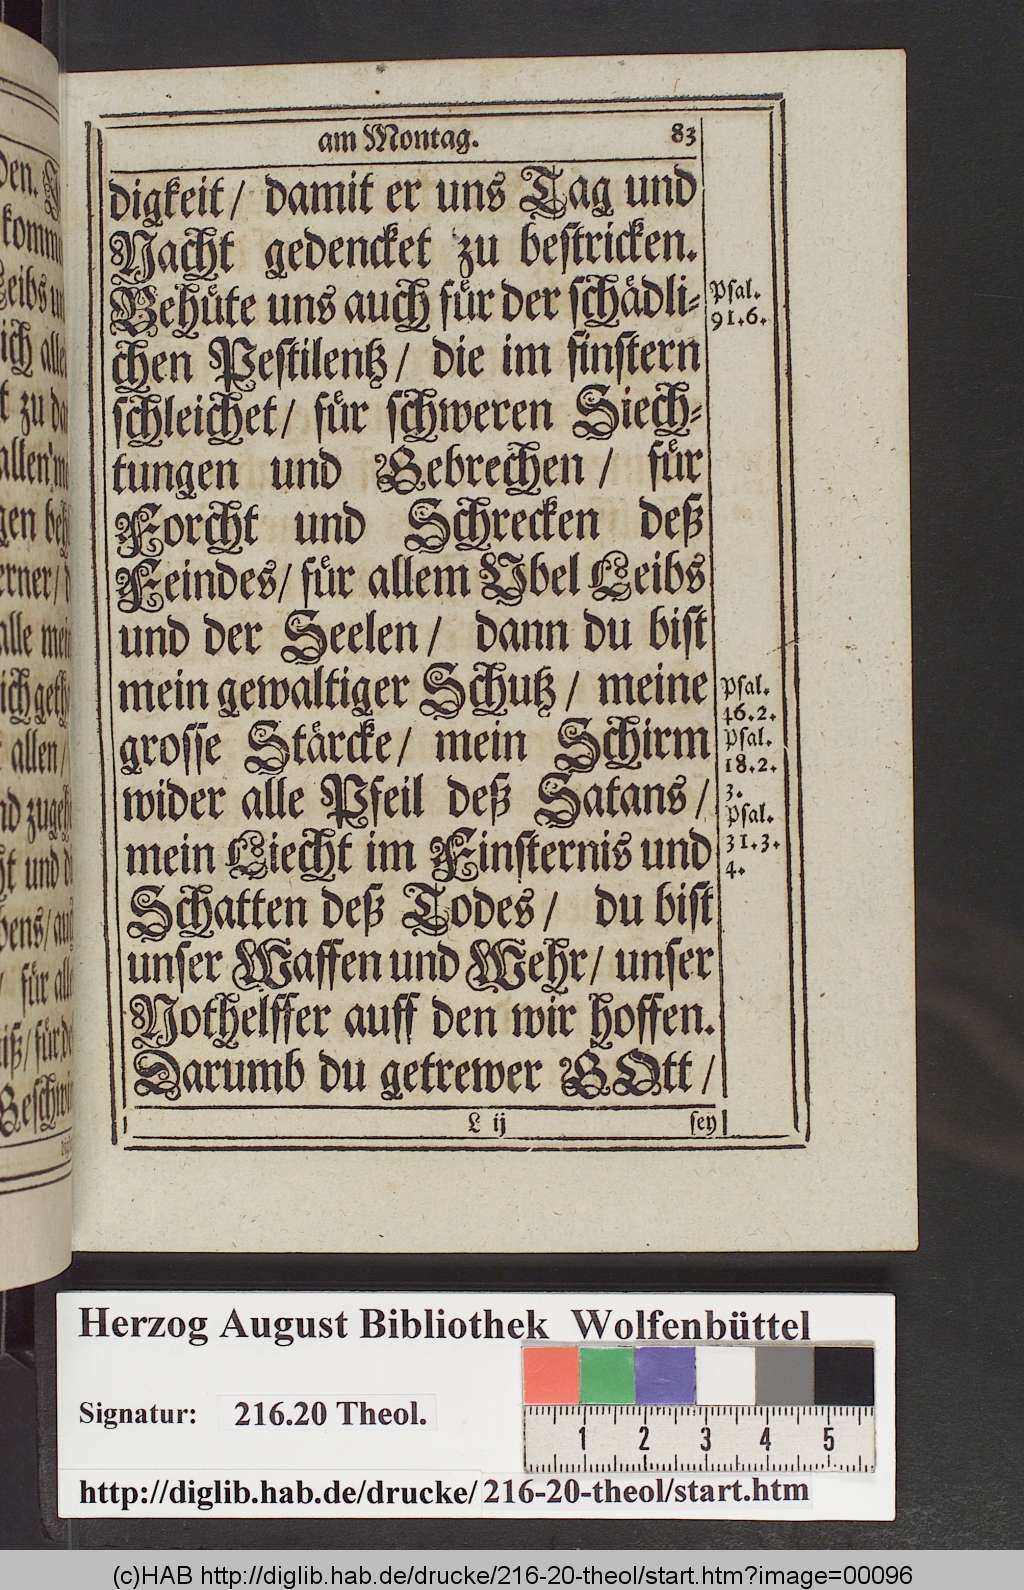 am Montag. 83
digkeit / damit er uns Tag und
Nacht gedencket zu bestricken.
Behüte uns auch für der schädli-
chen Pestilentz / die im finstern
schleichet / für schweren Siech-
tungen und Gebrechen / für
Forcht und Schrecken deß
Feindes / für allem Vbel Leibs
und der Seelen / dann du bist
mein gewaltiger Schutz / meine
grosse Stärcke / mein Schirm
wider alle Pfeil deß Satans /
mein Liecht im Finsternis und
Schatten deß Todes / du bist
unser Waffen und Wehr / unser
Nothelffer auff den wir hoffen.
Darumb du getrewer GOtt /
L ij sey
Psal.
91.6.
Psal.
46.2.
Psal.
18.2.
3.
Psal.
31.3.
4.
den.
komm
Leibs un
ich alle
t zu da
allen
gen beh
erner / d
alle mein
ich geth
allen /
nd zuge
ht und d
bens / auch
/ für alle
/ für de
Geschwin
Herzog August Bibliothek Wolfenbüttel
Signatur: 216.20 Theol.
1 2 3 4 5
http://diglib.hab.de/drucke/216-20-theol/start.htm
(c)HAB http://diglib.hab.de/drucke/216-20-theol/start.htm?image=00096